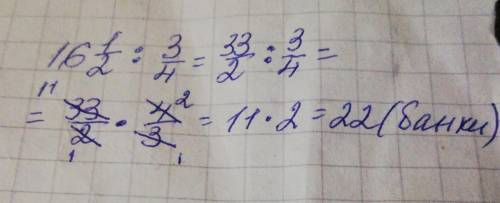 16 1/2 : 3/4 = 33/2 : 3/4 =
= 33/2 · 4/3 = 11 · 2 = 22 (банки)